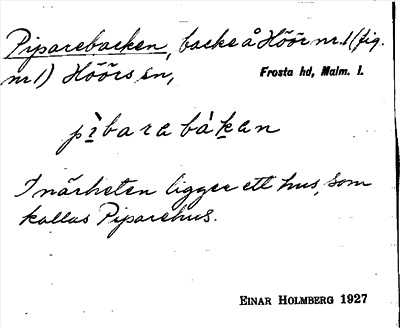 Piparebacken, backe å Höör nr. 1 (fig.
nr 1) Höörs sn, Frosta hd, Malm. l.
pìbarabákan
I närheten ligger ett hus, som
kallas Piparehus.
EINAR HOLMBERG 1927